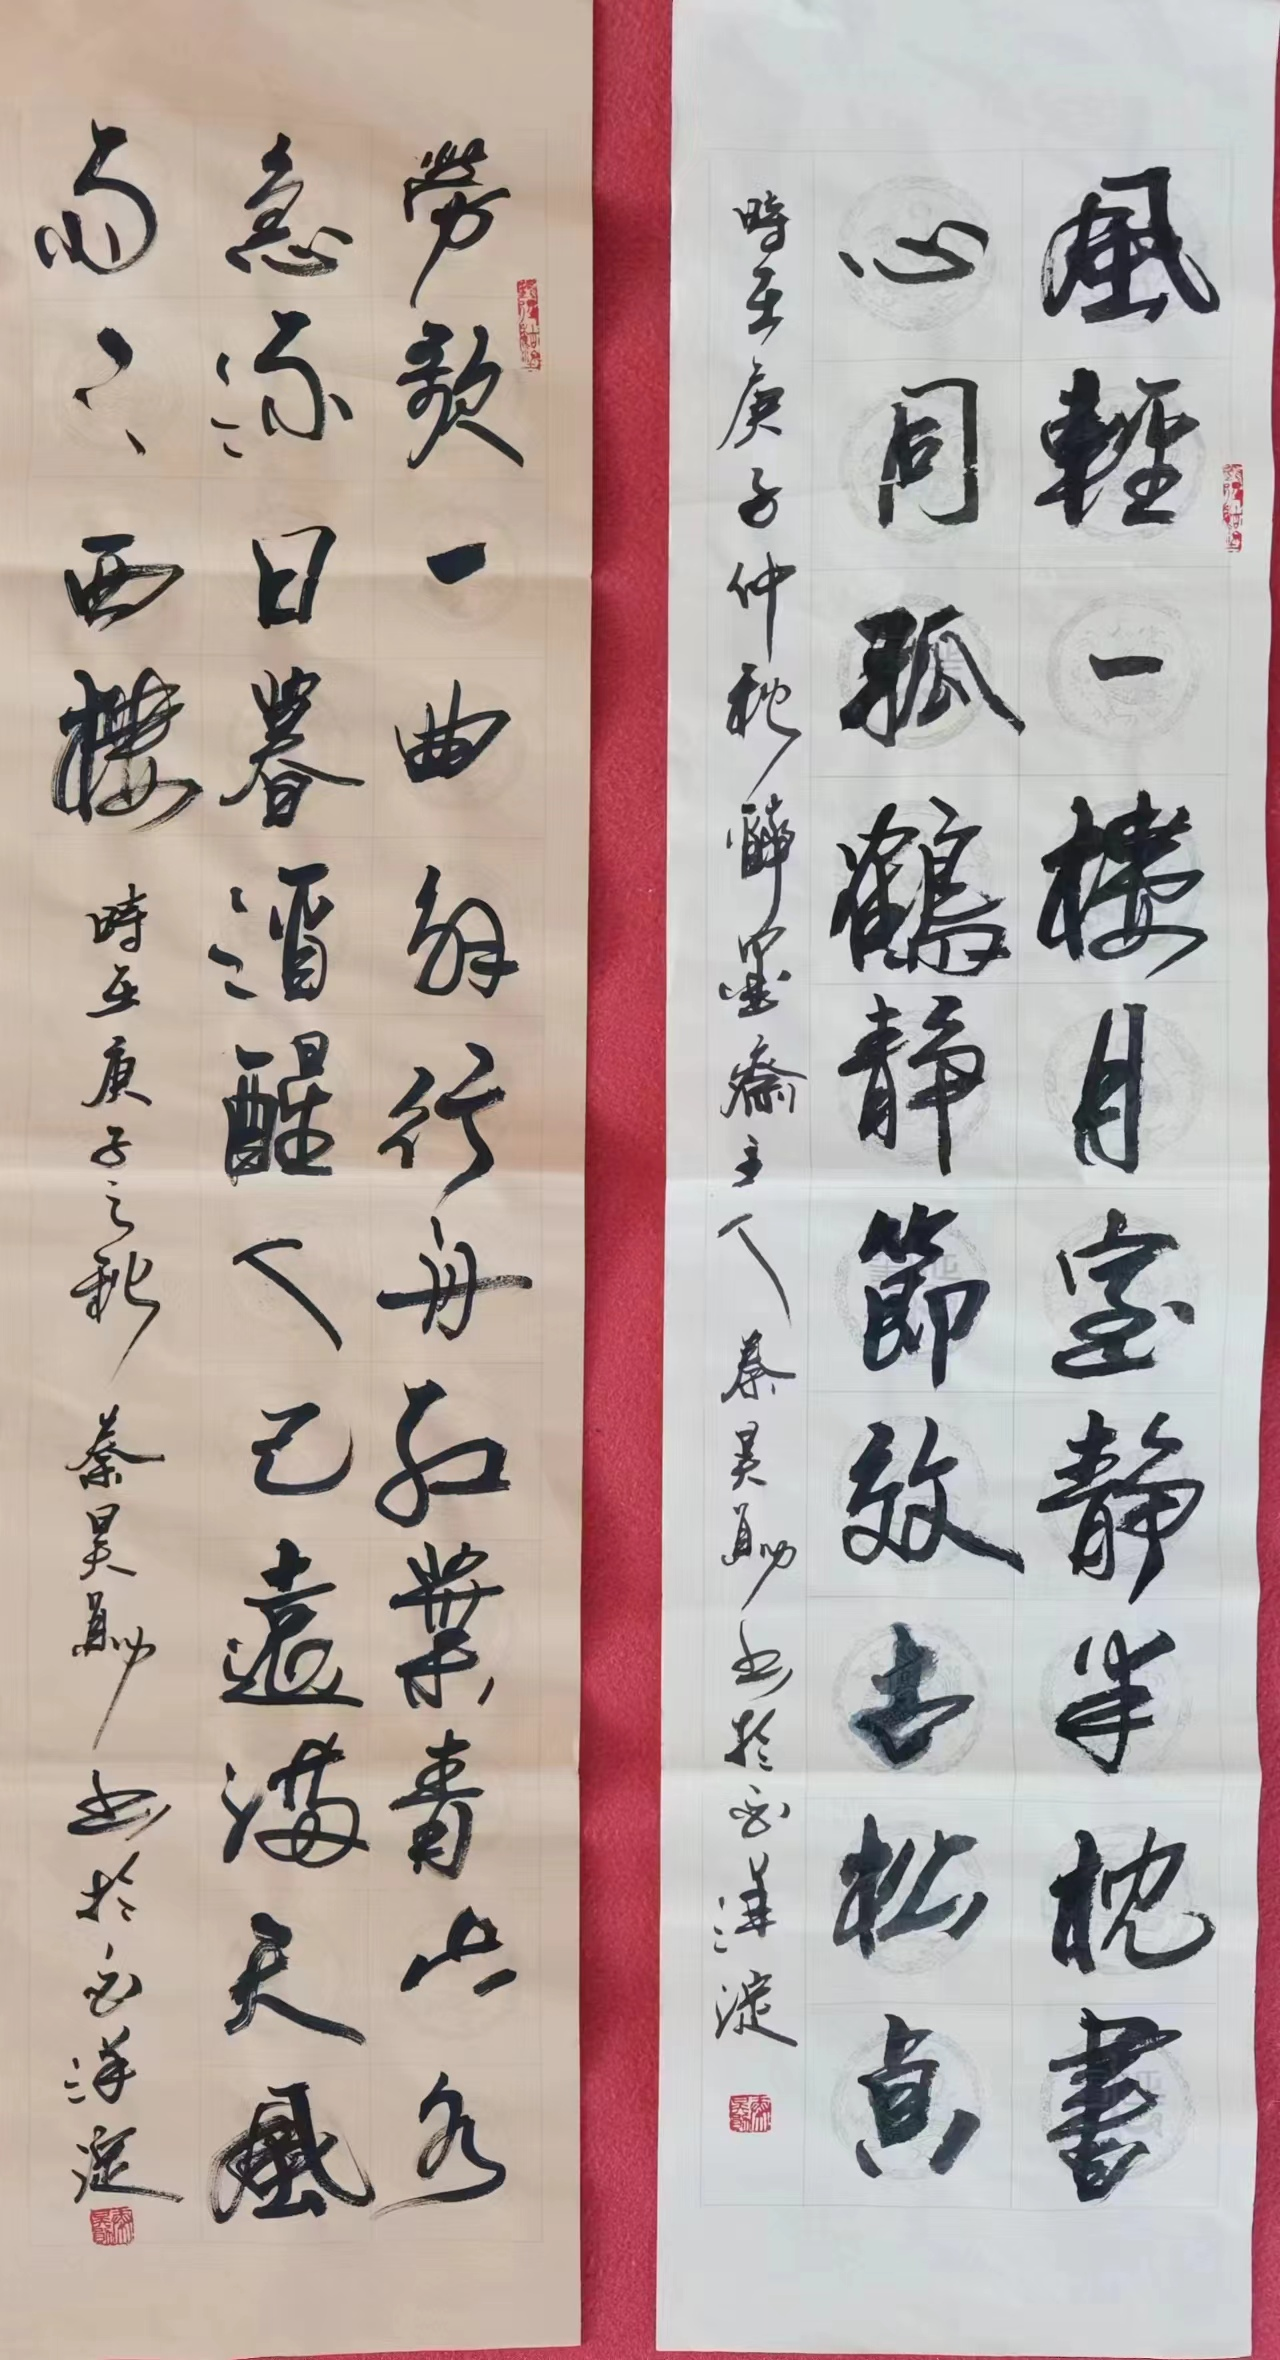 風輕一樓月室靜半枕書
心同孤鶴靜節效古松貞
時在庚子仲秋醉墨齋主人秦昊勛書於白洋淀
勞歌一曲解行舟紅葉青山水
急流日暮酒醒人已遠滿天風
雨下西樓
時在庚子之秋秦昊勛書於白洋淀